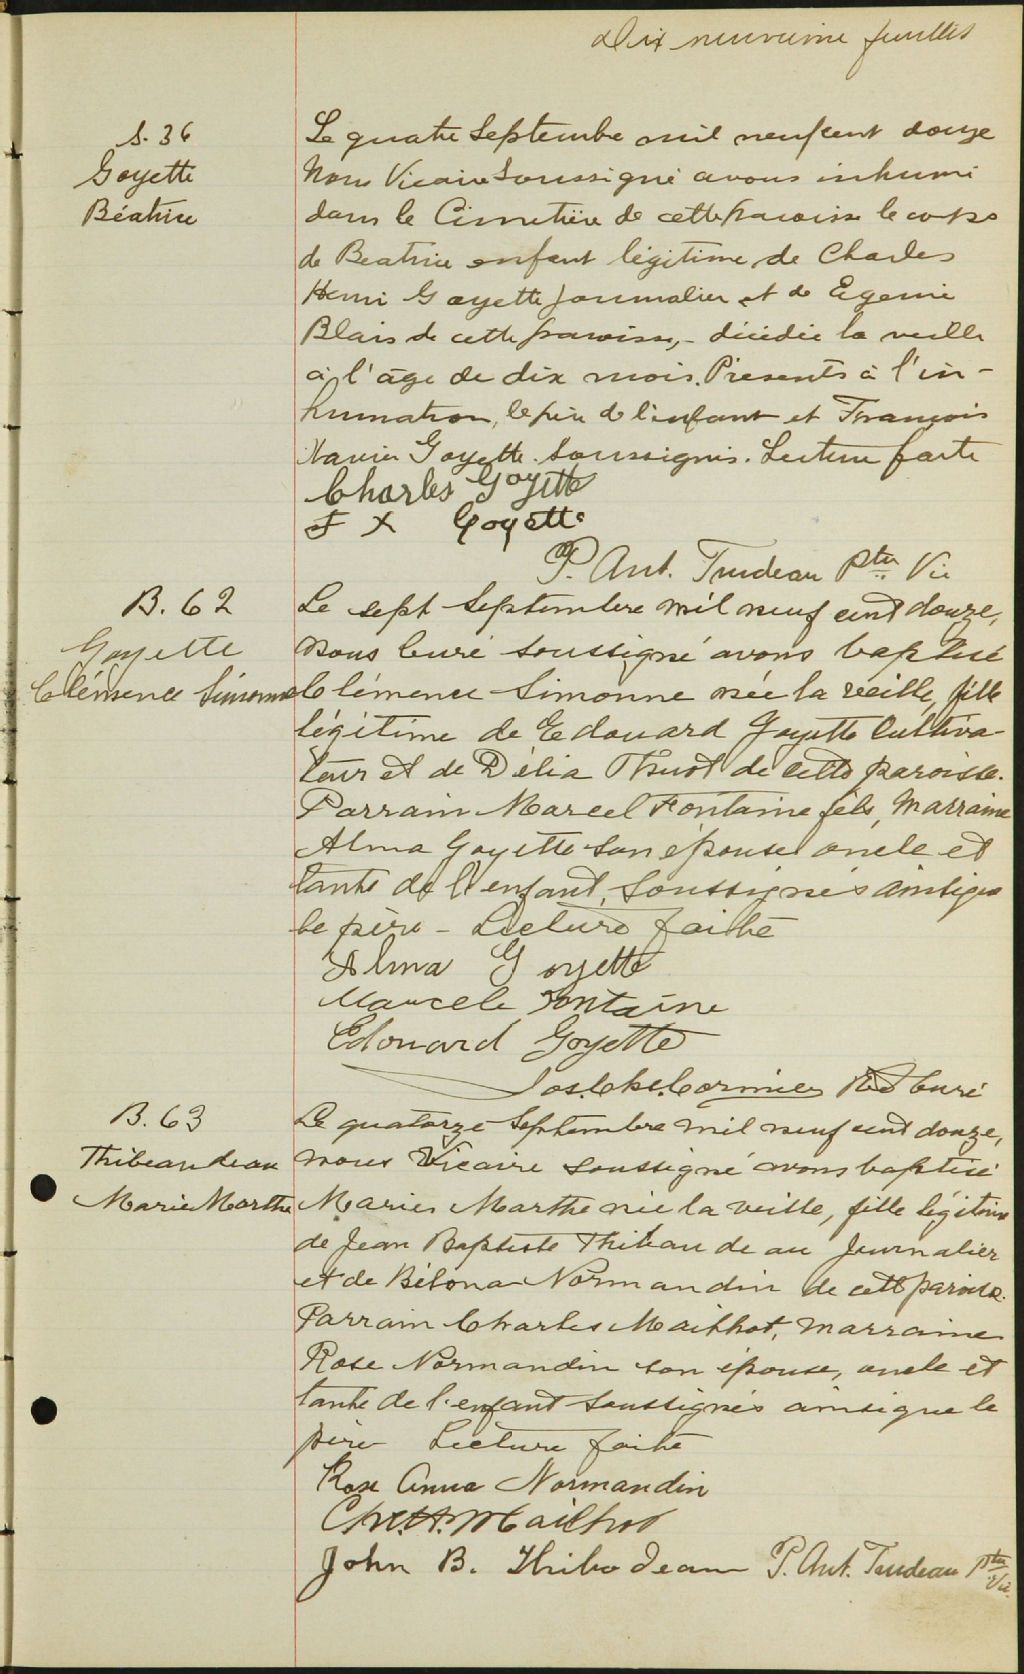 Dix neuvième feuillet
S. 36
Goyette
Béatrice
Le quatre Septembre mil neuf cent douze
Nous Vicaire Soussigné avons inhumé
dans le Cimetière de cette paroisse le corps
de Beatrice enfant légitime de Charles
Henri Goyette journalier et de Egenie
Blais de cette paroisse, - décédée la veille
à l'âge de dix mois. Présents à l'in-
humation, le père de l'enfant et François
Xavier Goyette. Soussignés. Lecture faite
Charles Goyette
F X Goyette
P. Ant. Trudeau Ptre Vic
B. 62
Goyette
Clémence Simonne
Le sept Septembre mil neuf cent douze,
nous Curé soussigné avons baptisé
Clémence Simonne née la veille, fille
légitime de Edouard Goyette Cultiva-
teur et de Délia Thuot de cette paroisse.
Parrain Marcel Fontaine fils, Marraine
Alma Goyette son épouse oncle et
tante de l'enfant, Soussignés ainsique
le père - Lecture faite
Alma Goyette
Marcele Fontaine
Edouard Goyette
Jos. Chs. Cormier Ptre Curé
B. 63
Thibeaudeau
Marie Marthe
Le quatorze Septembre mil neuf cent douze,
nous Vicaire soussigné avons baptisé
Marie Marthe née la veille, fille légitime
de Jean Baptiste Thibaudeau Journalier
et de Normandin de cette paroisse.
Parrain Charles Mailhot, marraine
Rose Normandin son épouse, oncle et
tante de l'enfant soussignés ainsique le
père Lecture faite
Rose Anna Normandin
Chs. H. Mailhot
John B. Thibodeau P. Ant. Trudeau Ptre Vic.